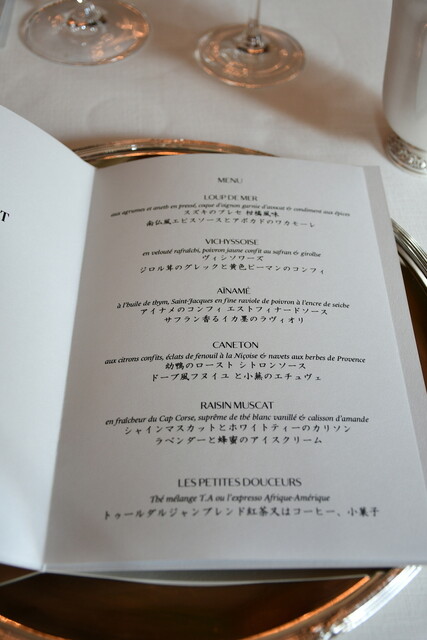 T
MENU
LOUP DE MER
aux agrumes et aneth en pressé, coque d'oignon garnie d'avocat & condiment aux épices
スズキのプレセ 柑橘風味
南仏風エピスソースとアボカドのワカモーレ
VICHYSSOISE
en velouté rafraîchi, poivron jaune confit au safran & girolle
ヴィシソワーズ
ジロル茸のグレックと黄色ピーマンのコンフィ
AÏNAMÉ
à l'huile de thym, Saint-Jacques en fine raviole de poivron à l'encre de seiche
アイナメのコンフィ エストフィナードソース
サフラン香るイカ墨のラヴィオリ
CANETON
aux citrons confits, éclats de fenouil à la Niçoise & navets aux herbes de Provence
幼鴨のロースト シトロンソース
ドーブ風フヌイユ と小蕪のエチュヴェ
RAISIN MUSCAT
en fraîcheur du Cap Corse, suprême de thé blanc vanillé & calisson d'amande
シャインマスカットとホワイトティーのカリソン
ラベンダーと蜂蜜のアイスクリーム
LES PETITES DOUCEURS
Thé mélange T.A ou l'expresso Afrique-Amérique
トゥールダルジャンブレンド紅茶又はコーヒー、小菓子